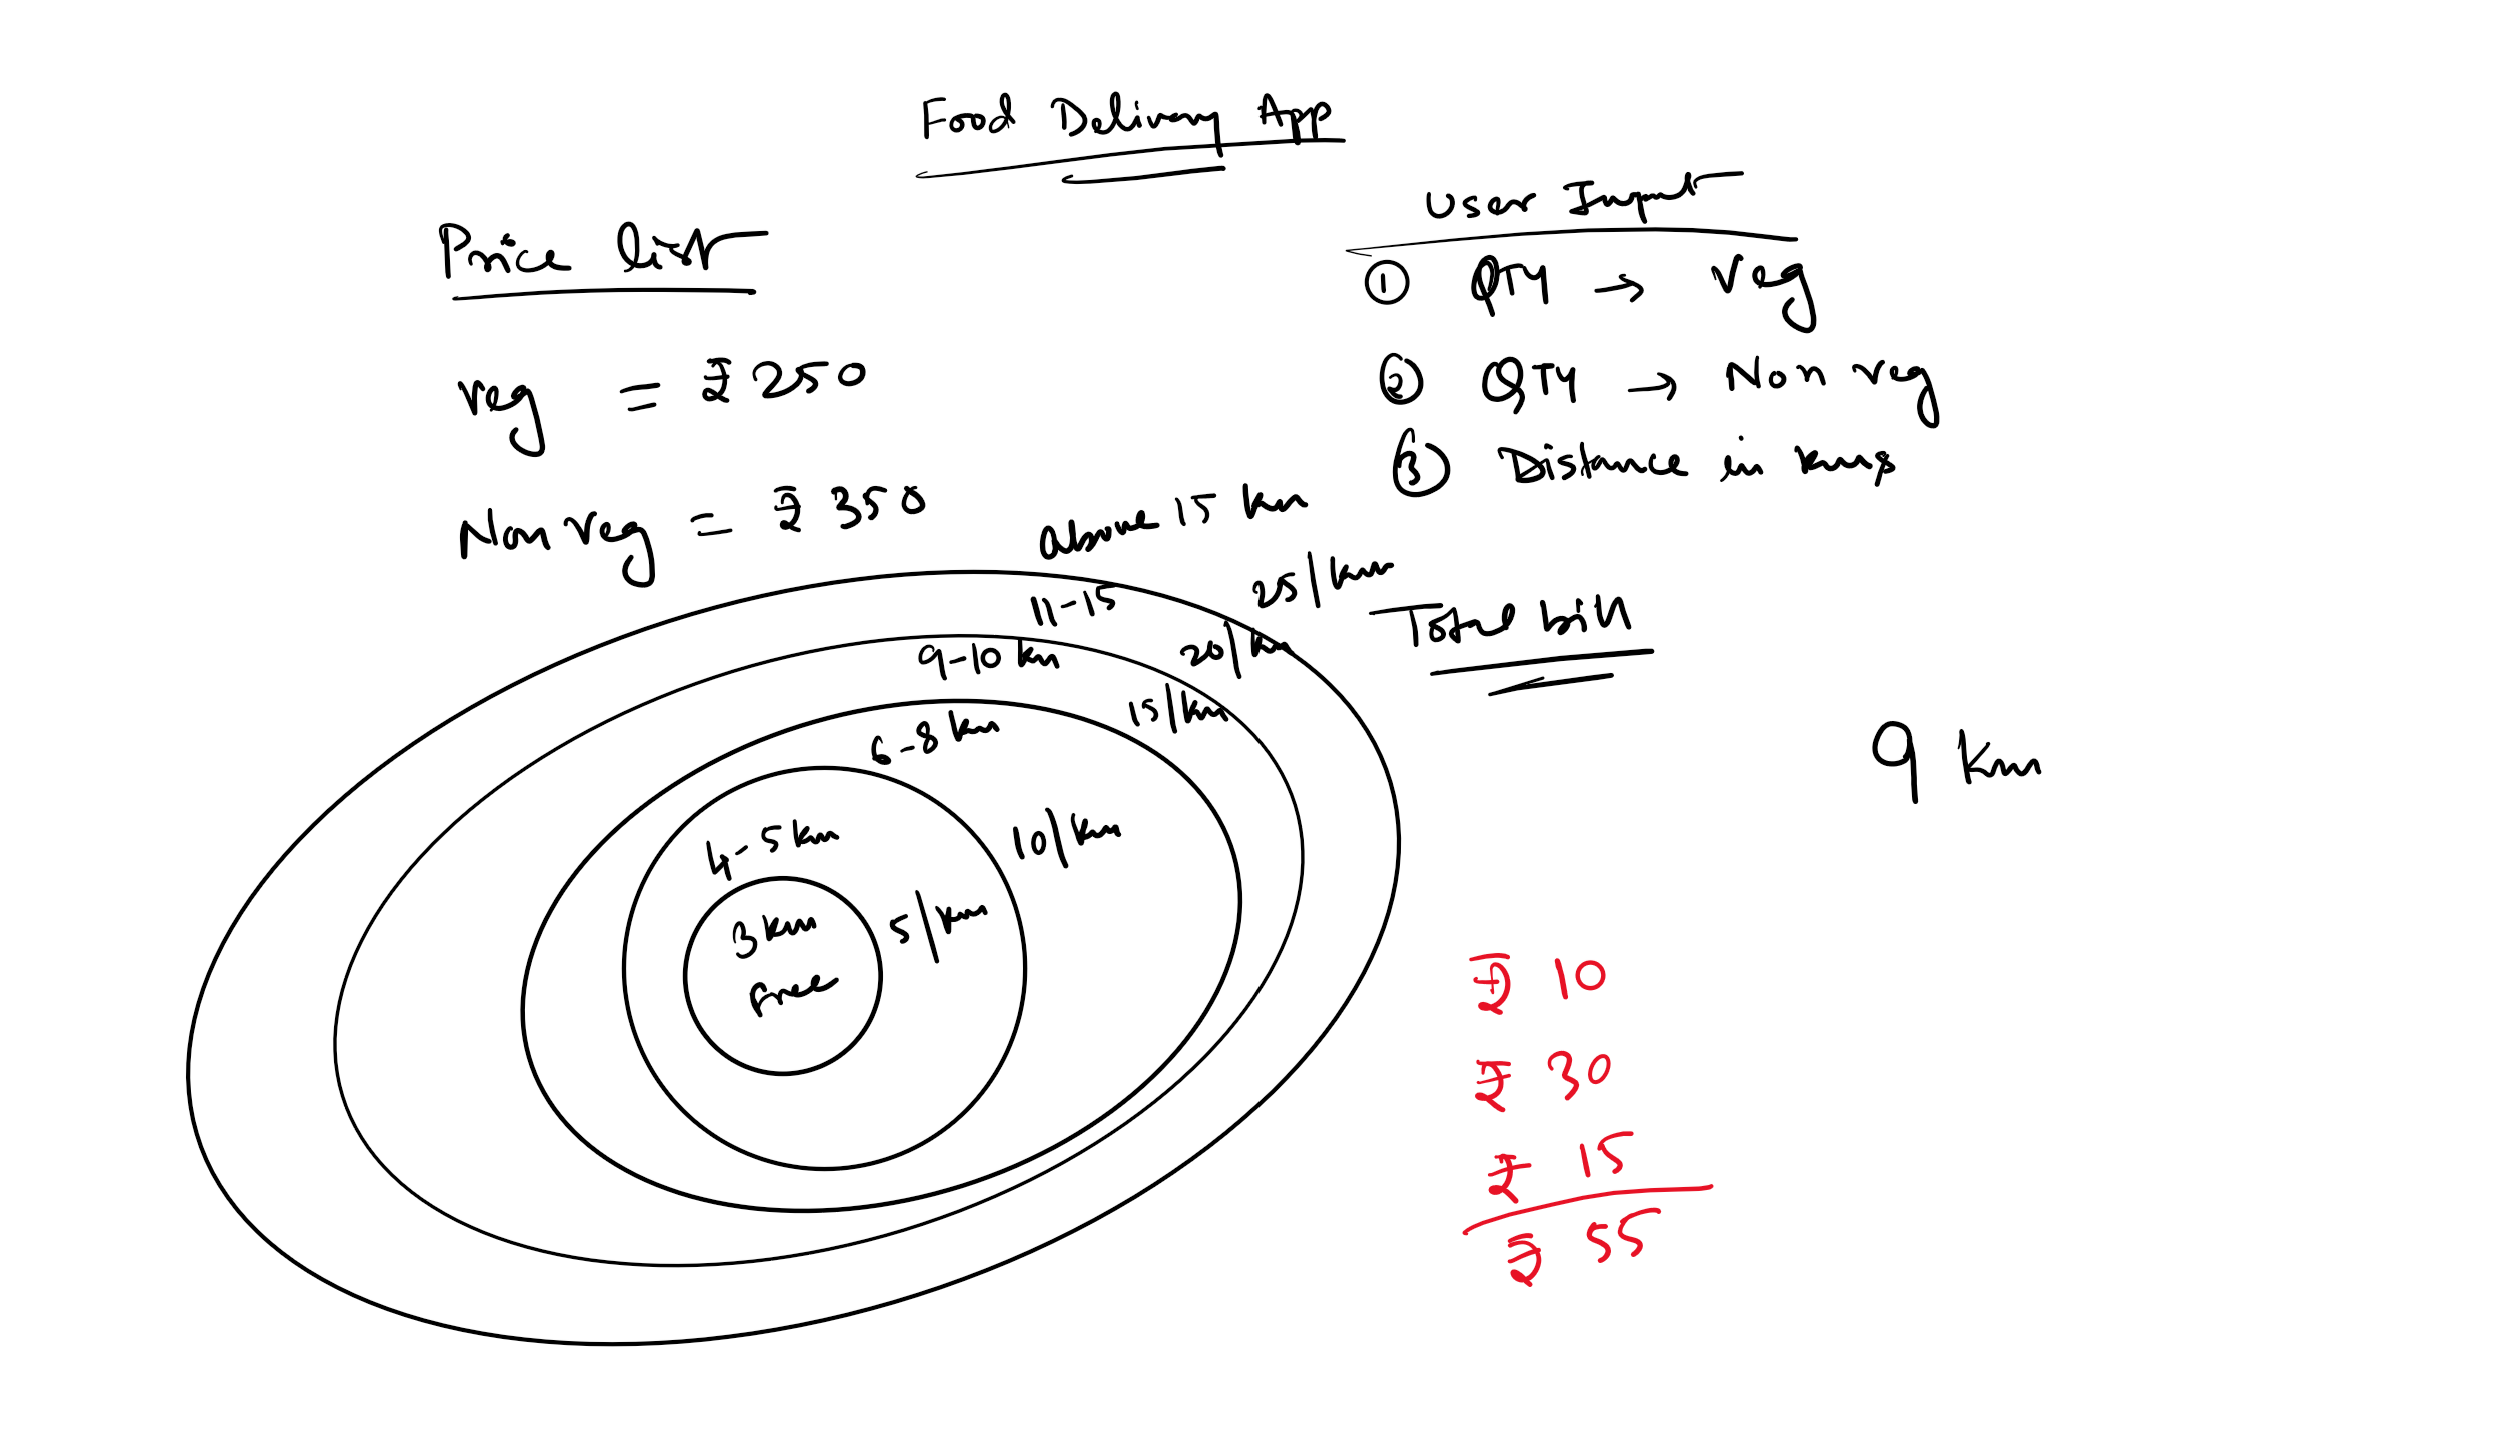 Food Delivery App
Price Chart
Veg = ₹ 250
Non veg = ₹ 350
User Input
① QTY → Veg
② QTY → Non veg
③ Distance in kms
Total bill
above 15 km
25/km
11-15
20/km
9-10 km
15/km
6-8 km
10/km
4-5 km
5/km
3 km
free
9 km
₹ 10
₹ 30
₹ 15
₹ 55